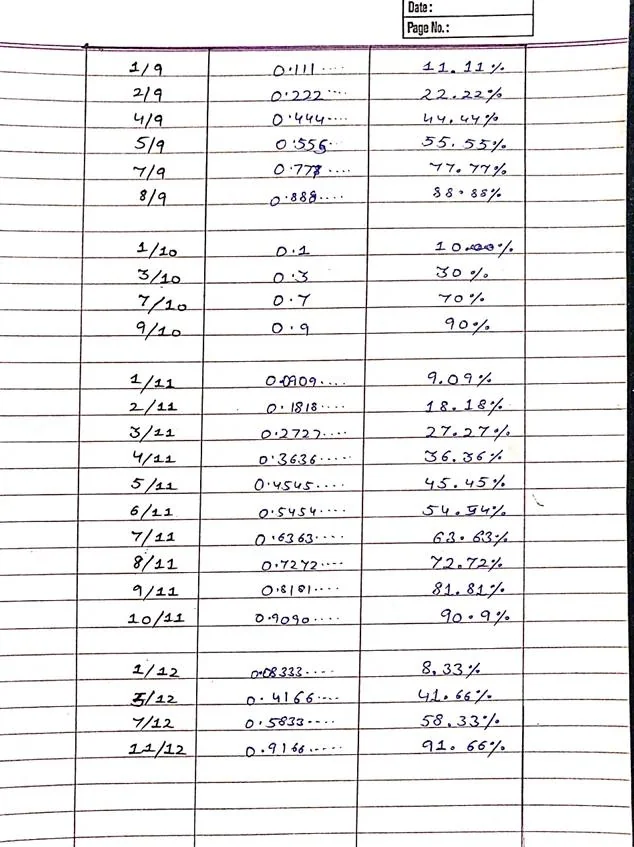 Date:
Page No.:
1/9 0.111.... 11.11%
2/9 0.222.... 22.22%
4/9 0.444.... 44.44%
5/9 0.555.. 55.55%
7/9 0.777.... 77.77%
8/9 0.888.... 88.88%
1/10 0.1 10.00%
3/10 0.3 30%
7/10 0.7 70%
9/10 0.9 90%
1/11 0.0909.... 9.09%
2/11 0.1818.... 18.18%
3/11 0.2727.... 27.27%
4/11 0.3636..... 36.36%
5/11 0.4545.... 45.45%
6/11 0.5454.... 54.54%
7/11 0.6363.... 63.63%
8/11 0.7272.... 72.72%
9/11 0.8181.... 81.81%
10/11 0.9090.... 90.9%
1/12 0.08333.... 8.33%
5/12 0.4166.... 41.66%
7/12 0.5833.... 58.33%
11/12 0.9166..... 91.66%